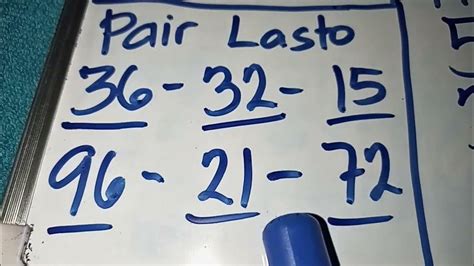 Pair Lasto
36 - 32 - 15
96 - 21 - 72